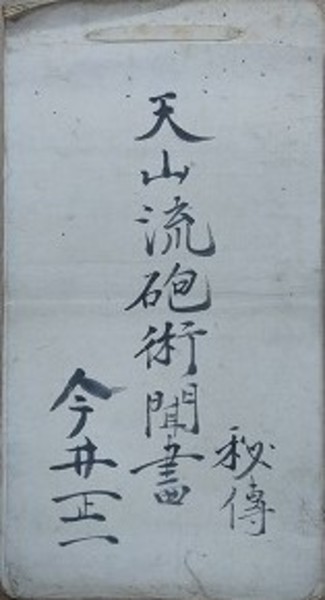 秘傳
天山流砲術聞書
今井正一